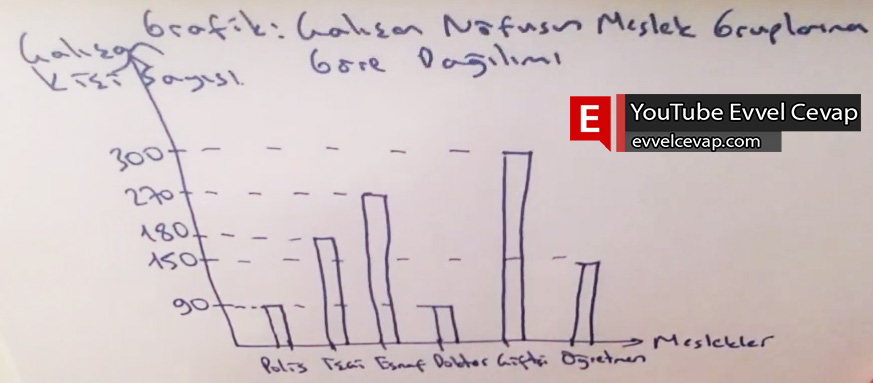 Grafik: Çalışan Nüfusun Meslek Gruplarına
Göre Dağılımı
Çalışan
Kişi Sayısı
E YouTube Evvel Cevap
evvelcevap.com
300
270
180
150
90
Meslekler
Polis İşçi Esnaf Doktor Çiftçi Öğretmen